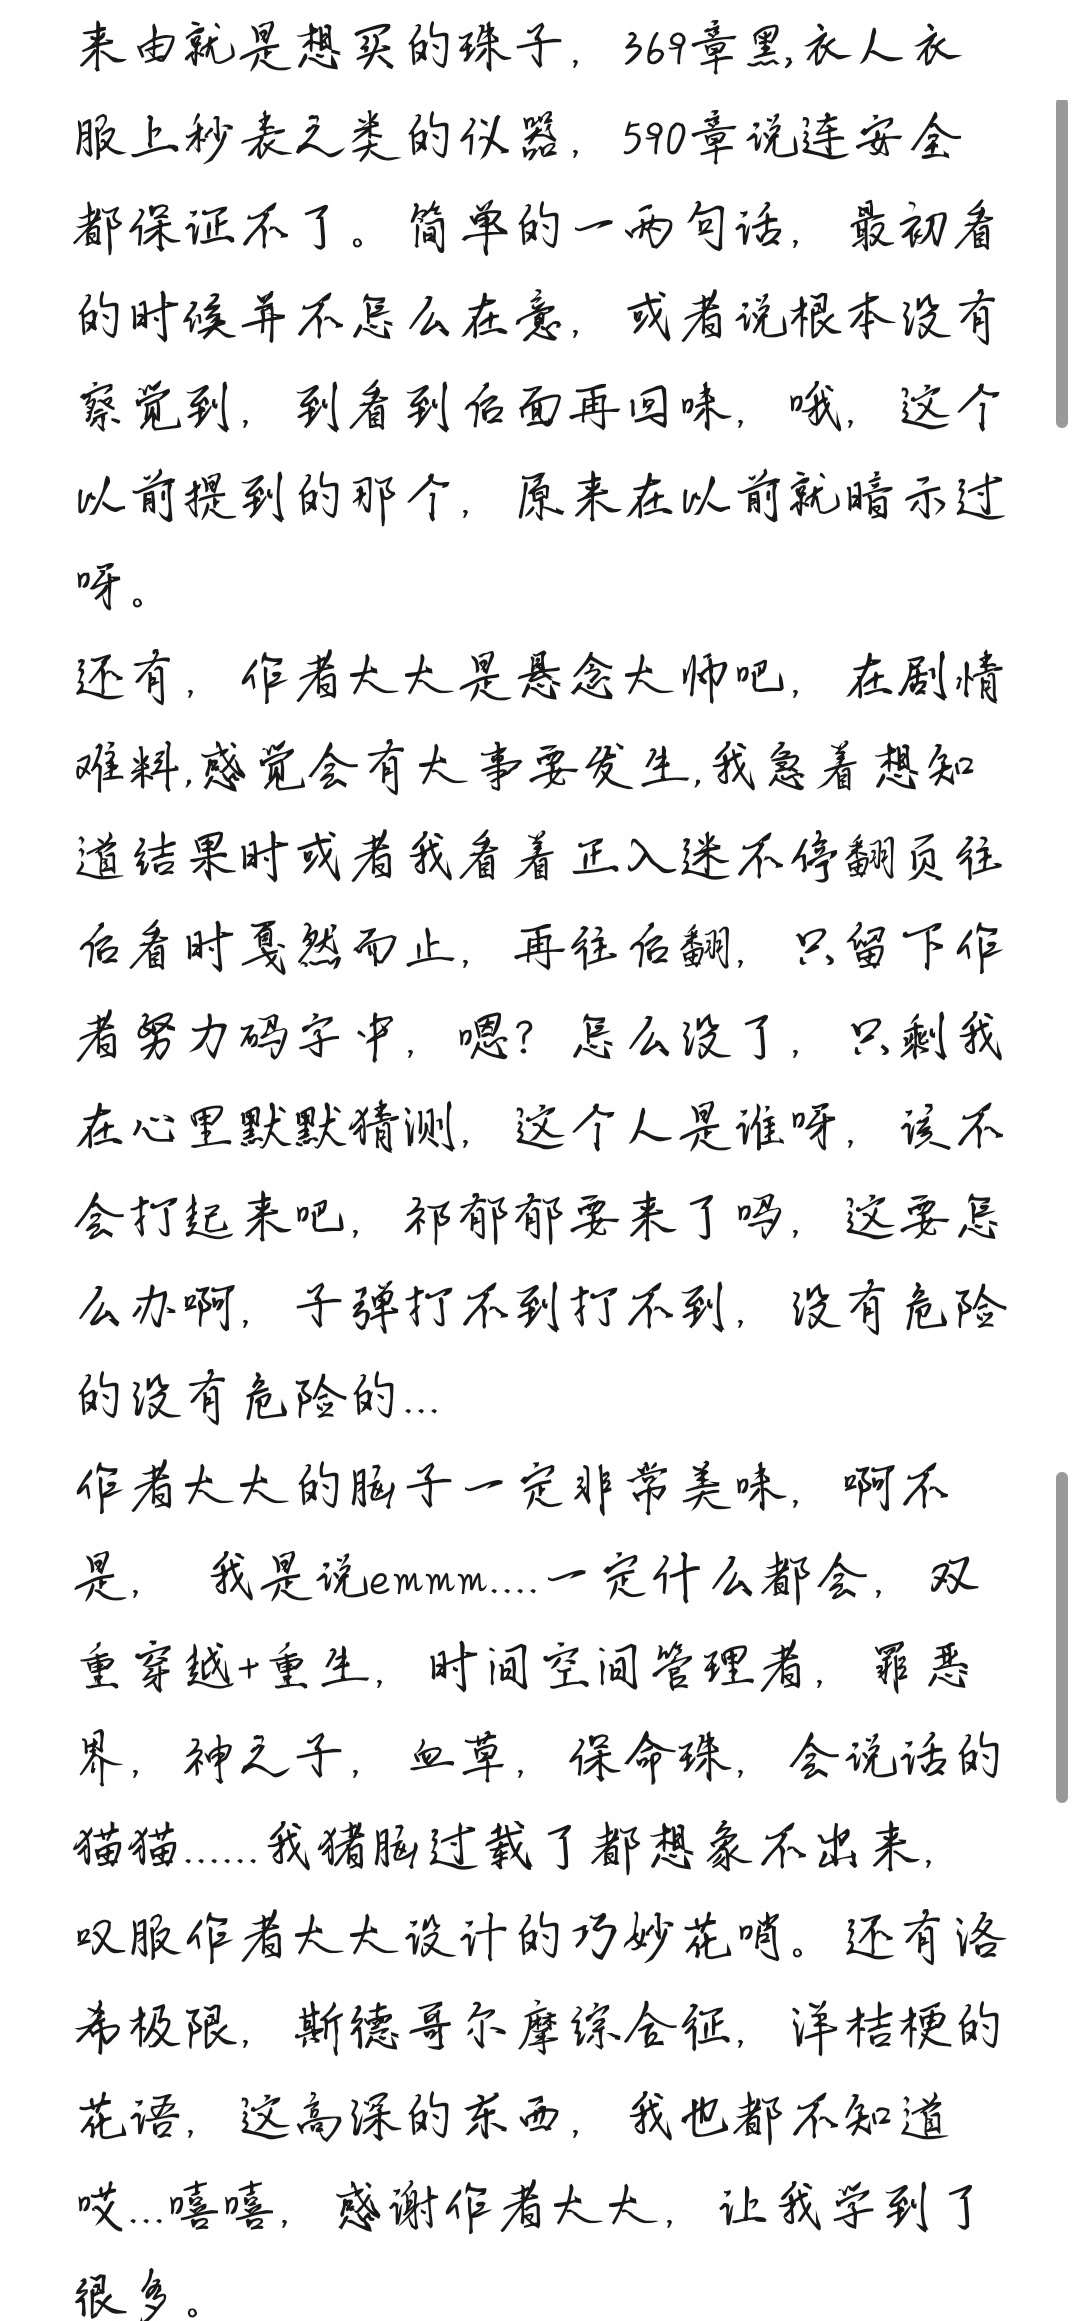 来由就是想买的珠子，369章黑,衣人衣
服上秒表之类的仪器，590章说连安全
都保证不了。简单的一两句话，最初看
的时候并不怎么在意，或者说根本没有
察觉到，到看到后面再回味，哦，这个
以前提到的那个，原来在以前就暗示过
呀。
还有，作者大大是悬念大师吧，在剧情
难料,感觉会有大事要发生,我急着想知
道结果时或者我看着正入迷不停翻页往
后看时戛然而止，再往后翻，只留下作
者努力码字中，嗯？怎么没了，只剩我
在心里默默猜测，这个人是谁呀，该不
会打起来吧，祁郁郁要来了吗，这要怎
么办啊，子弹打不到打不到，没有危险
的没有危险的...
作者大大的脑子一定非常美味，啊不
是， 我是说emmm....一定什么都会，双
重穿越+重生，时间空间管理者，罪恶
界，神之子，血草，保命珠，会说话的
猫猫......我猪脑过载了都想象不出来，
叹服作者大大设计的巧妙花哨。还有洛
希极限，斯德哥尔摩综合征，洋桔梗的
花语，这高深的东西，我也都不知道
哎...嘻嘻，感谢作者大大，让我学到了
很多。